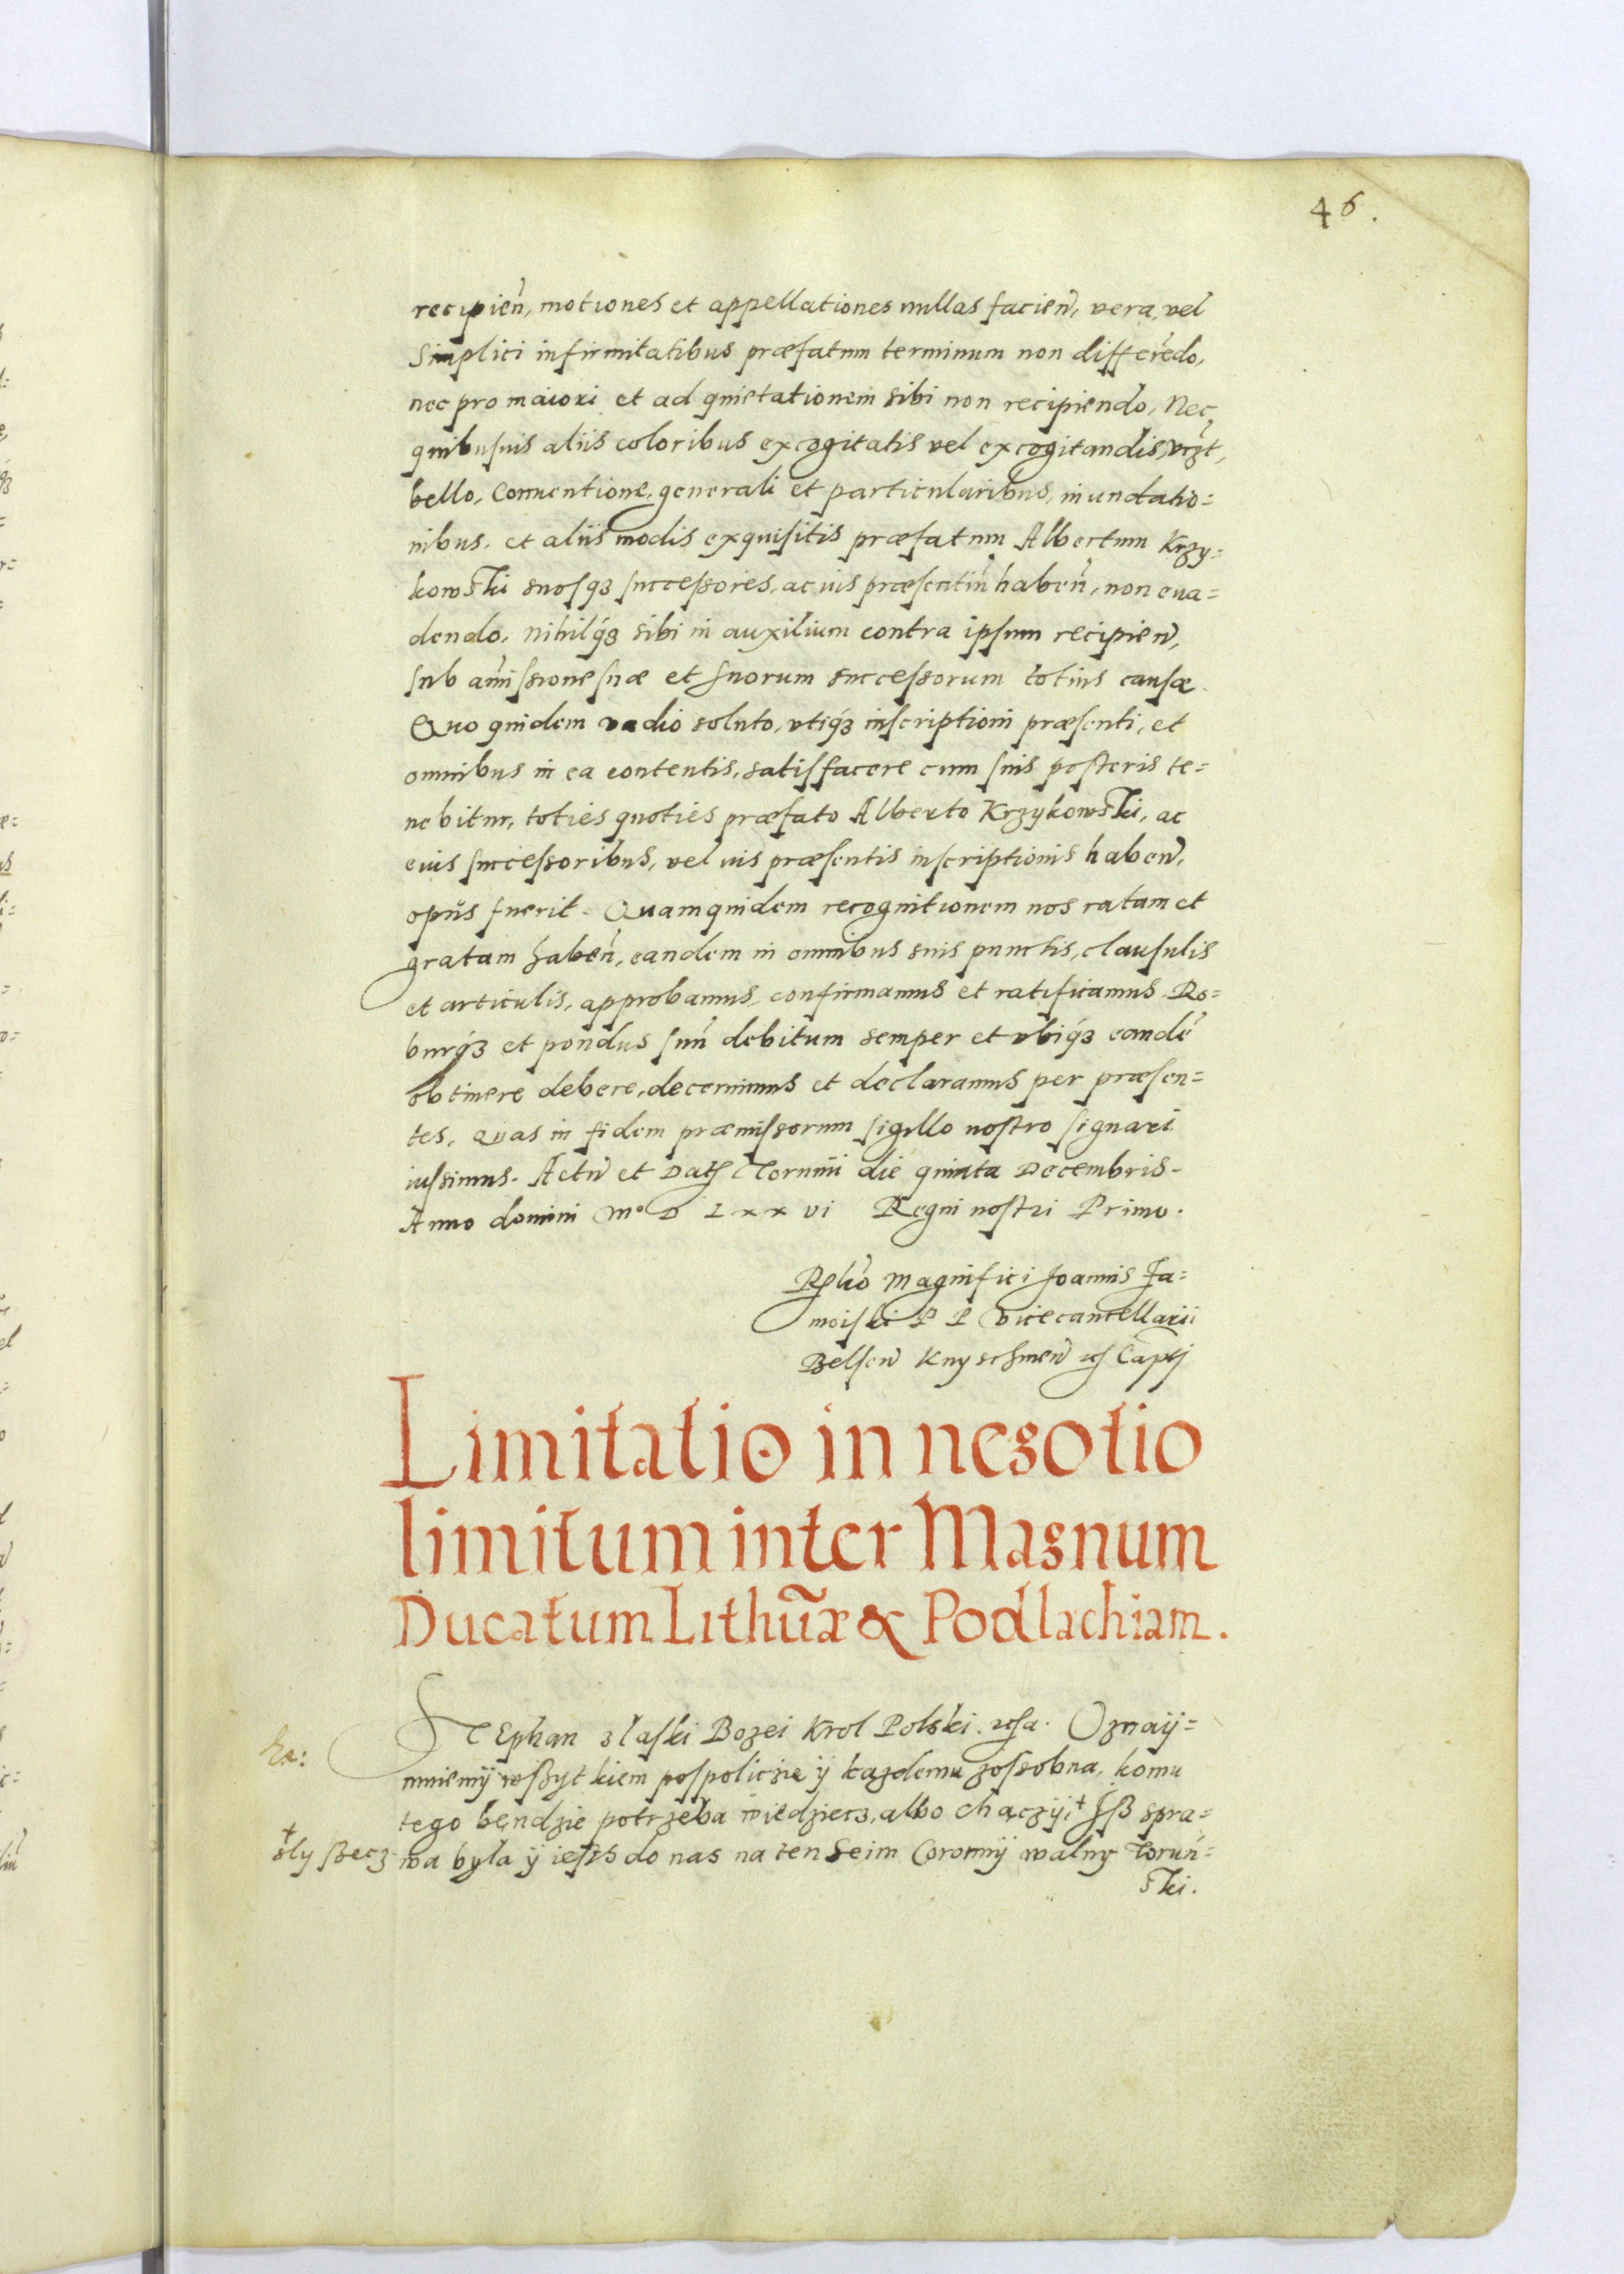 46.
recipien, motiones et appellationes nullas facien, vera, vel
simplici infirmitatibus præfatum terminum non differedo,
nec pro maiori et ad quietationem sibi non recipiendo, Nec
quibusuis aliis coloribus excogitatis vel excogitandis, vtzt,
bello, Conuentione, generali et particularibus, inundatio=
nibus, et aliis modis exquisitis præfatum Albertum Krzy=
kowski suosq3 successores, ac ius præsentiu haben, non eua=
dendo, nihilq3 sibi in auxilium contra ipsum recipien,
sub amissione suæ et suorum successorum totius causæ.
Quo quidem vadio soluto, vtiq3 inscriptioni præsenti, et
omnibus in ea contentis, satisfacere cum suis posteris te=
nebitur, toties quoties præfato Alberto Krzykowski, ac
eius successoribus, vel ius præsentis inscriptionis haben,
opus fuerit. Quamquidem recognitionem nos ratam et
gratam haben, eandem in omnibus suis punctis, clausulis
et articulis, approbamus, confirmamus et ratificamus. Ro=
burq3 et pondus suu debitum semper et vbiq3 eande
obtinere debere, decernimus et declaramus per præsen=
tes, quas in fidem præmissorum sigillo nostro signari
iussimus. Actu et Dat Torunii die quinta Decembris.
Anno domini M° D Lxxvi Regni nostri Primo.
Rlo Magnifici Joannis Za=
moiski P P Vicecancellarii
Belsen Knyschinen Capti
Limitatio in negotio
limitum inter Magnum
Ducatum Lithuæ & Podlachiam.
STEphan z laski Bozei Krol Polski. Oznaÿ=
muiemÿ wßytkiem pospoliczie ÿ kazdemu zossobna, komu
tego bendzie potrzeba wiedziecz, albo chączÿ,† Iß spra=
†slyßecz
wa była ÿ iesth do nas na ten Seim Coronnÿ walny Toruń=
ski.